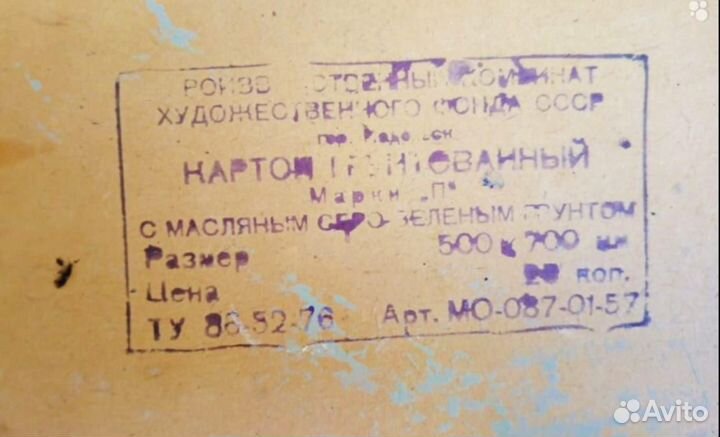 ХУДОЖЕСТВЕННОГО ФОНДА СССР
гор.
КАРТОН ГРУНТОВАННЫЙ
Марки „П"
С МАСЛЯНЫМ СЕРО-ЗЕЛЕНЫМ ГРУНТОМ
Размер 500 х 700 мм
Цена коп.
ТУ 86-52-76 Арт. МО-087-01-57
Avito